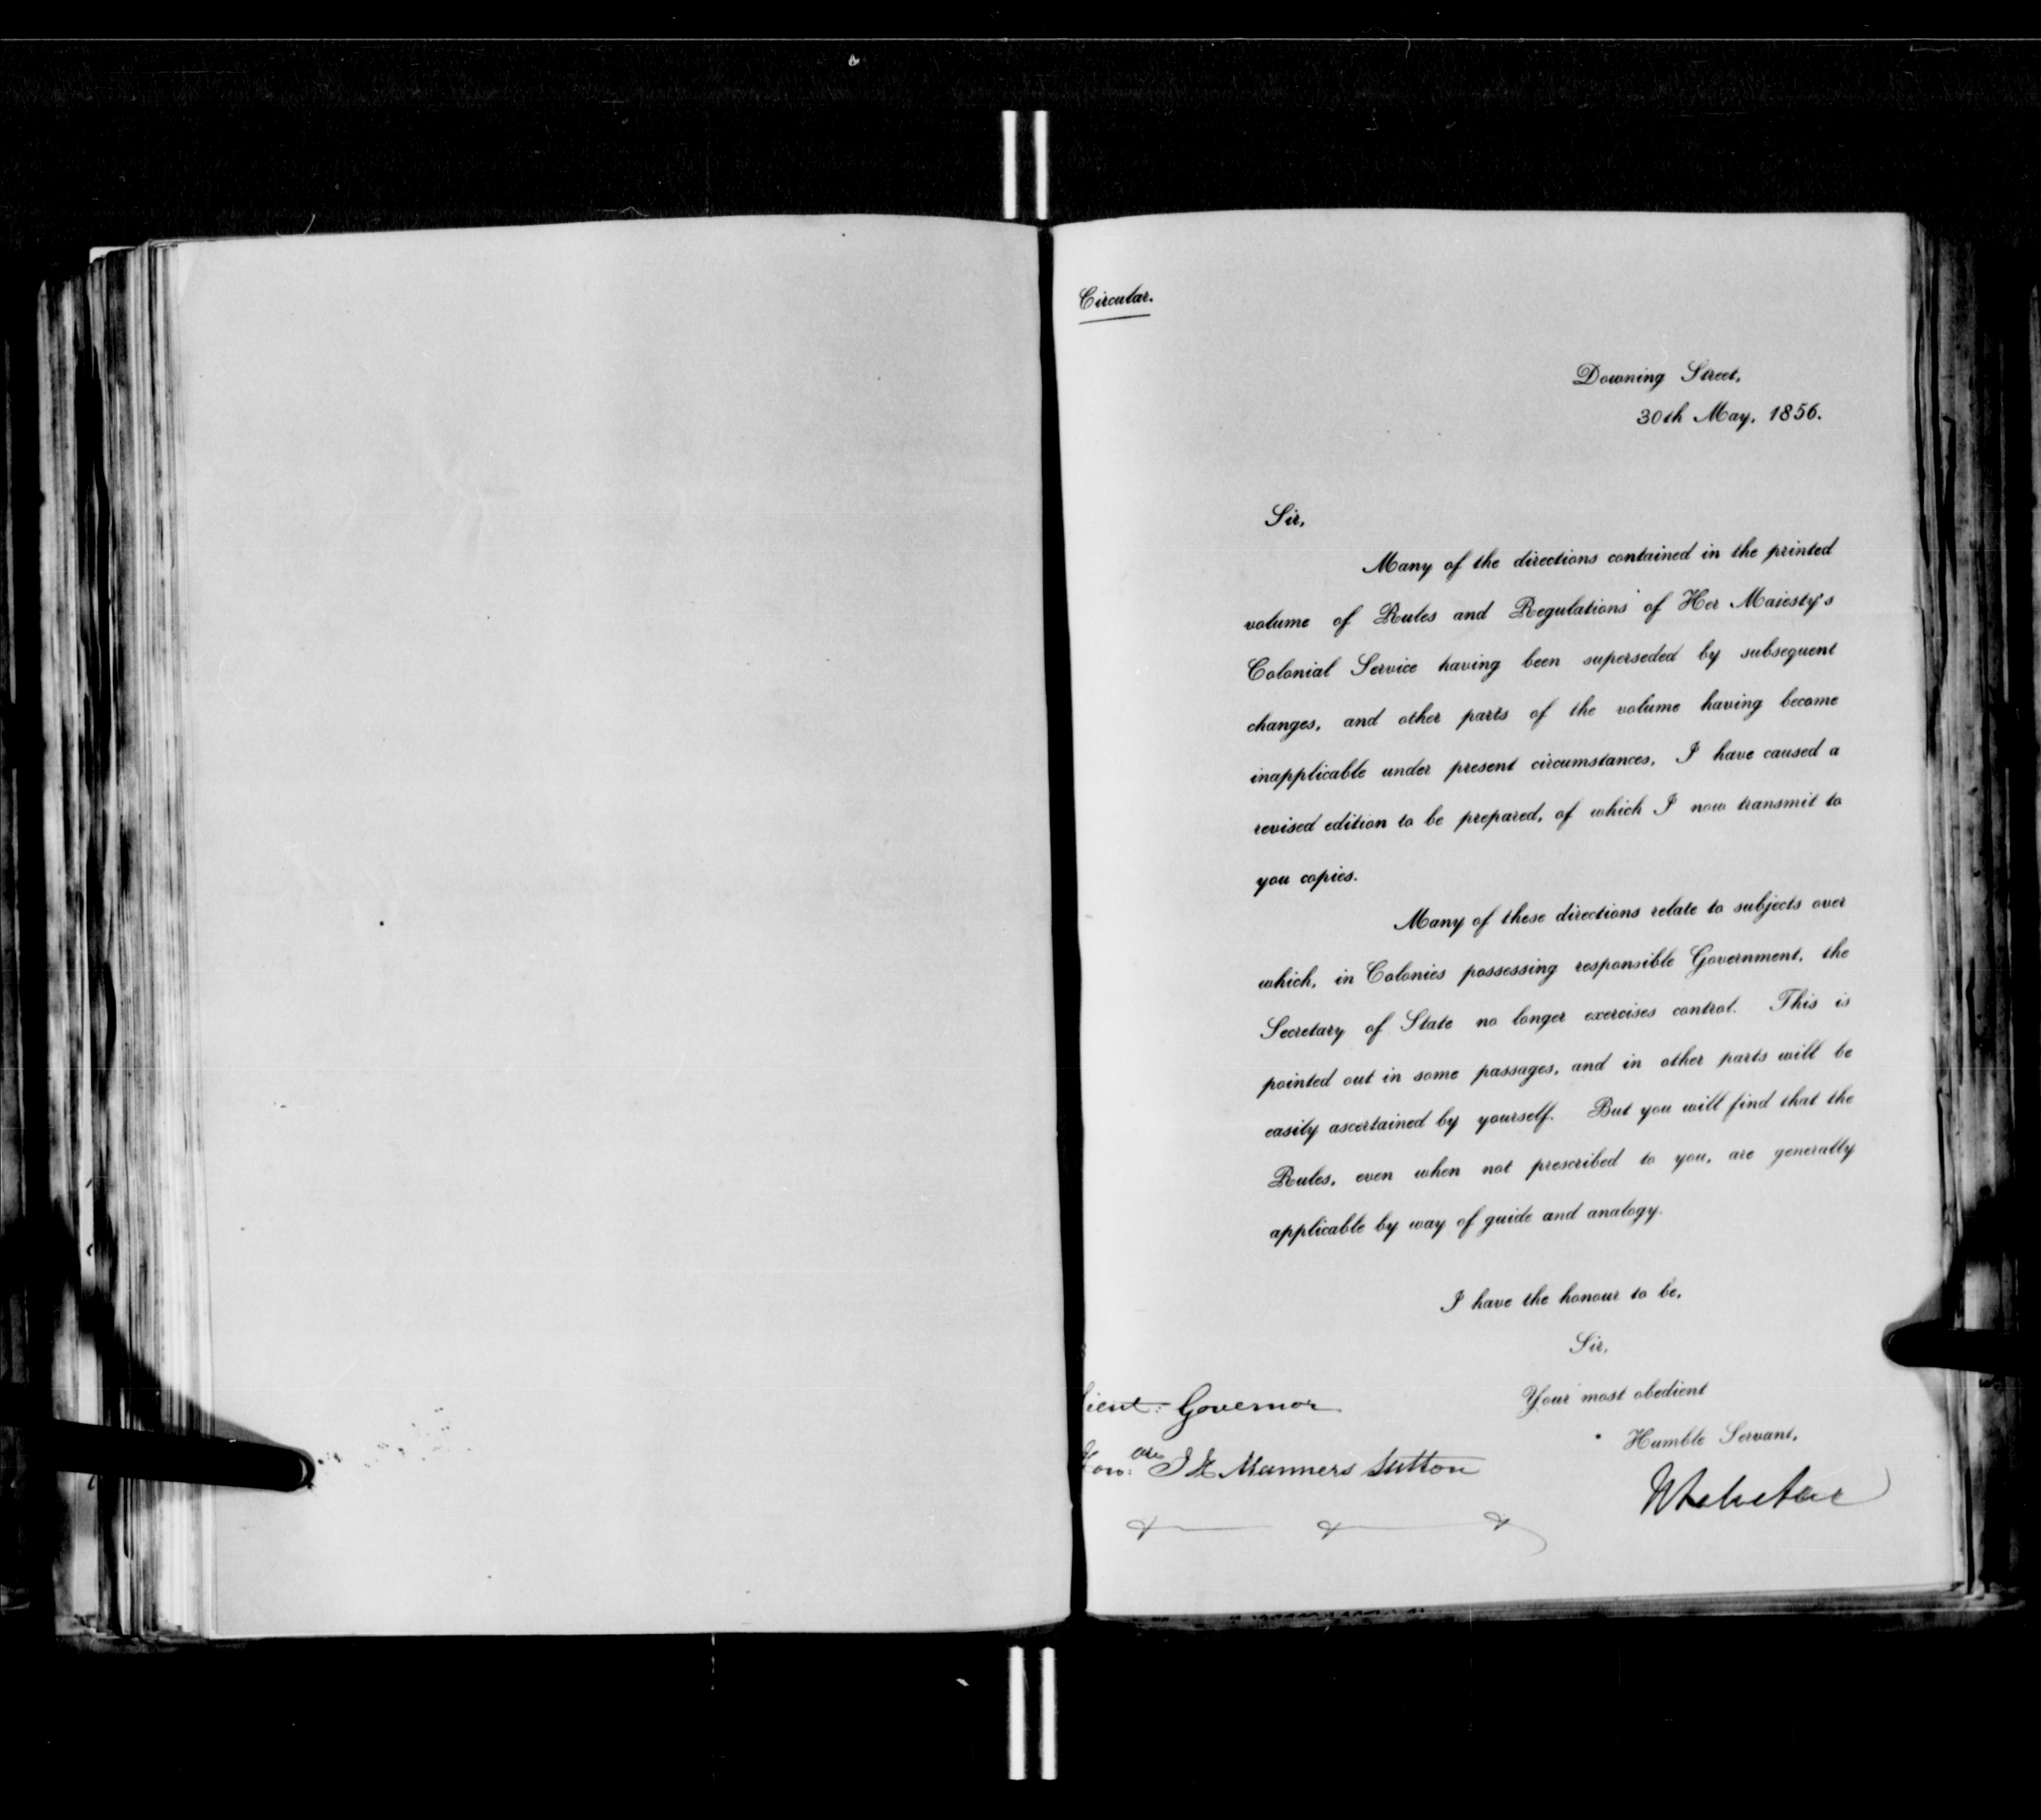 Circular.
Downing Street,
30th May, 1856.
Sir,
Many of the directions contained in the printed
volume of Rules and Regulations of Her Majesty's
Colonial Service having been superseded by subsequent
changes, and other parts of the volume having become
inapplicable under present circumstances, I have caused a
revised edition to be prepared, of which I now transmit to
you copies.
Many of these directions relate to subjects over
which, in Colonies possessing responsible Government, the
Secretary of State no longer exercises control. This is
pointed out in some passages, and in other parts will be
easily ascertained by yourself. But you will find that the
Rules, even when not prescribed to you, are generally
applicable by way of guide and analogy.
I have the honour to be,
Sir,
Your most obedient
Humble Servant,
Lieut: Governor
Honble J H Manners Sutton